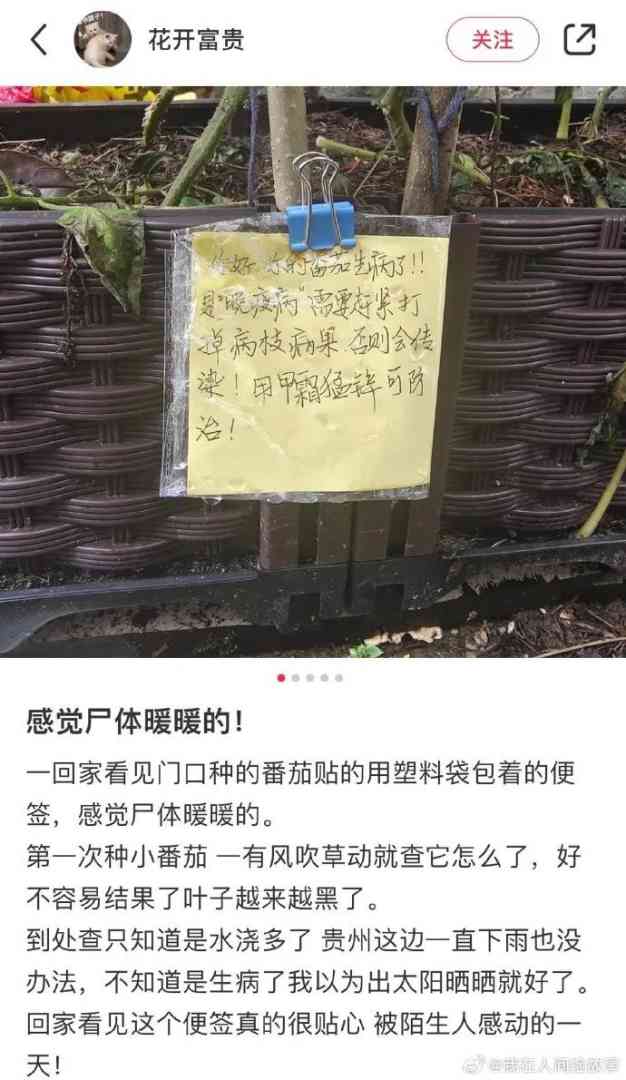 花开富贵
关注
你好 你的番茄生病了!!
是"晚疫病"需要赶紧打
掉病枝病果 否则会传
染！用甲霜猛锌可防
治！
感觉尸体暖暖的！
一回家看见门口种的番茄贴的用塑料袋包着的便
签，感觉尸体暖暖的。
第一次种小番茄 一有风吹草动就查它怎么了，好
不容易结果了叶子越来越黑了。
到处查只知道是水浇多了 贵州这边一直下雨也没
办法，不知道是生病了我以为出太阳晒晒就好了。
回家看见这个便签真的很贴心 被陌生人感动的一
天！